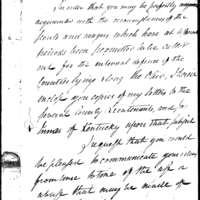 In order that you may be perfectly
arrangements with the accomplishments of the
Scouts and rangers which have at
periods been permitted to be called
out for the internal defence of the
Counties lying along the Ohio, I
enclose you copies of my letters to the
several County Lieutenants, and
Innes of Kentucky upon that subject
I request that you would
be pleased to communicate your ideas
from time to time of the use or
abuse that may be made of